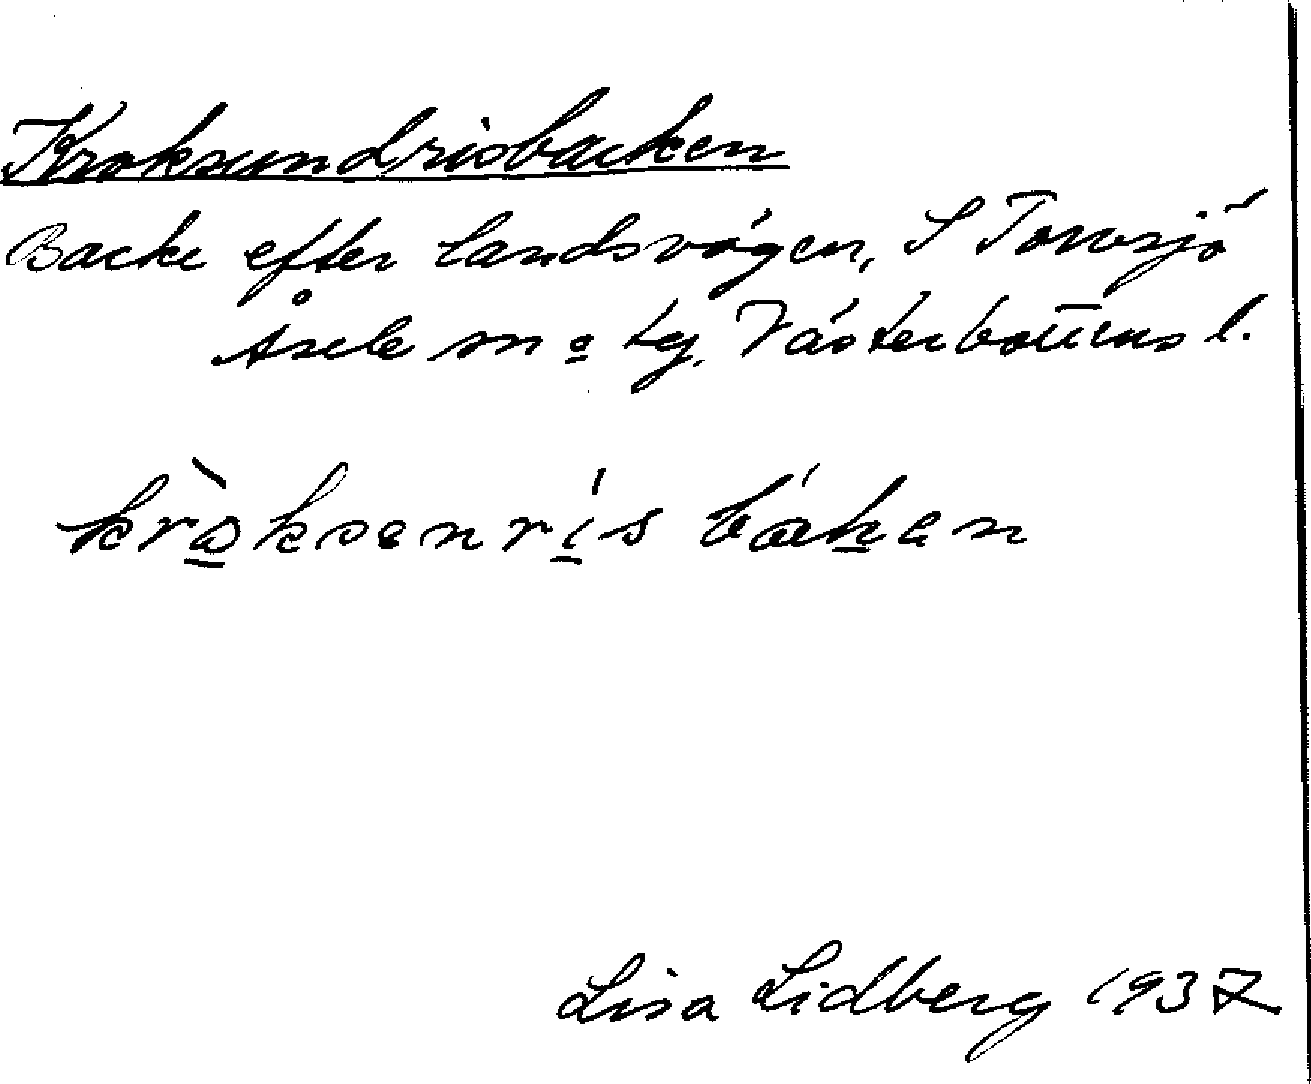 Kroksundrisbacken
Backe efter landsvägen, S Torvsjö
Åsele sn o tg. Västerbottens l.
kròksenrís bákan
Lisa Lidberg 1937